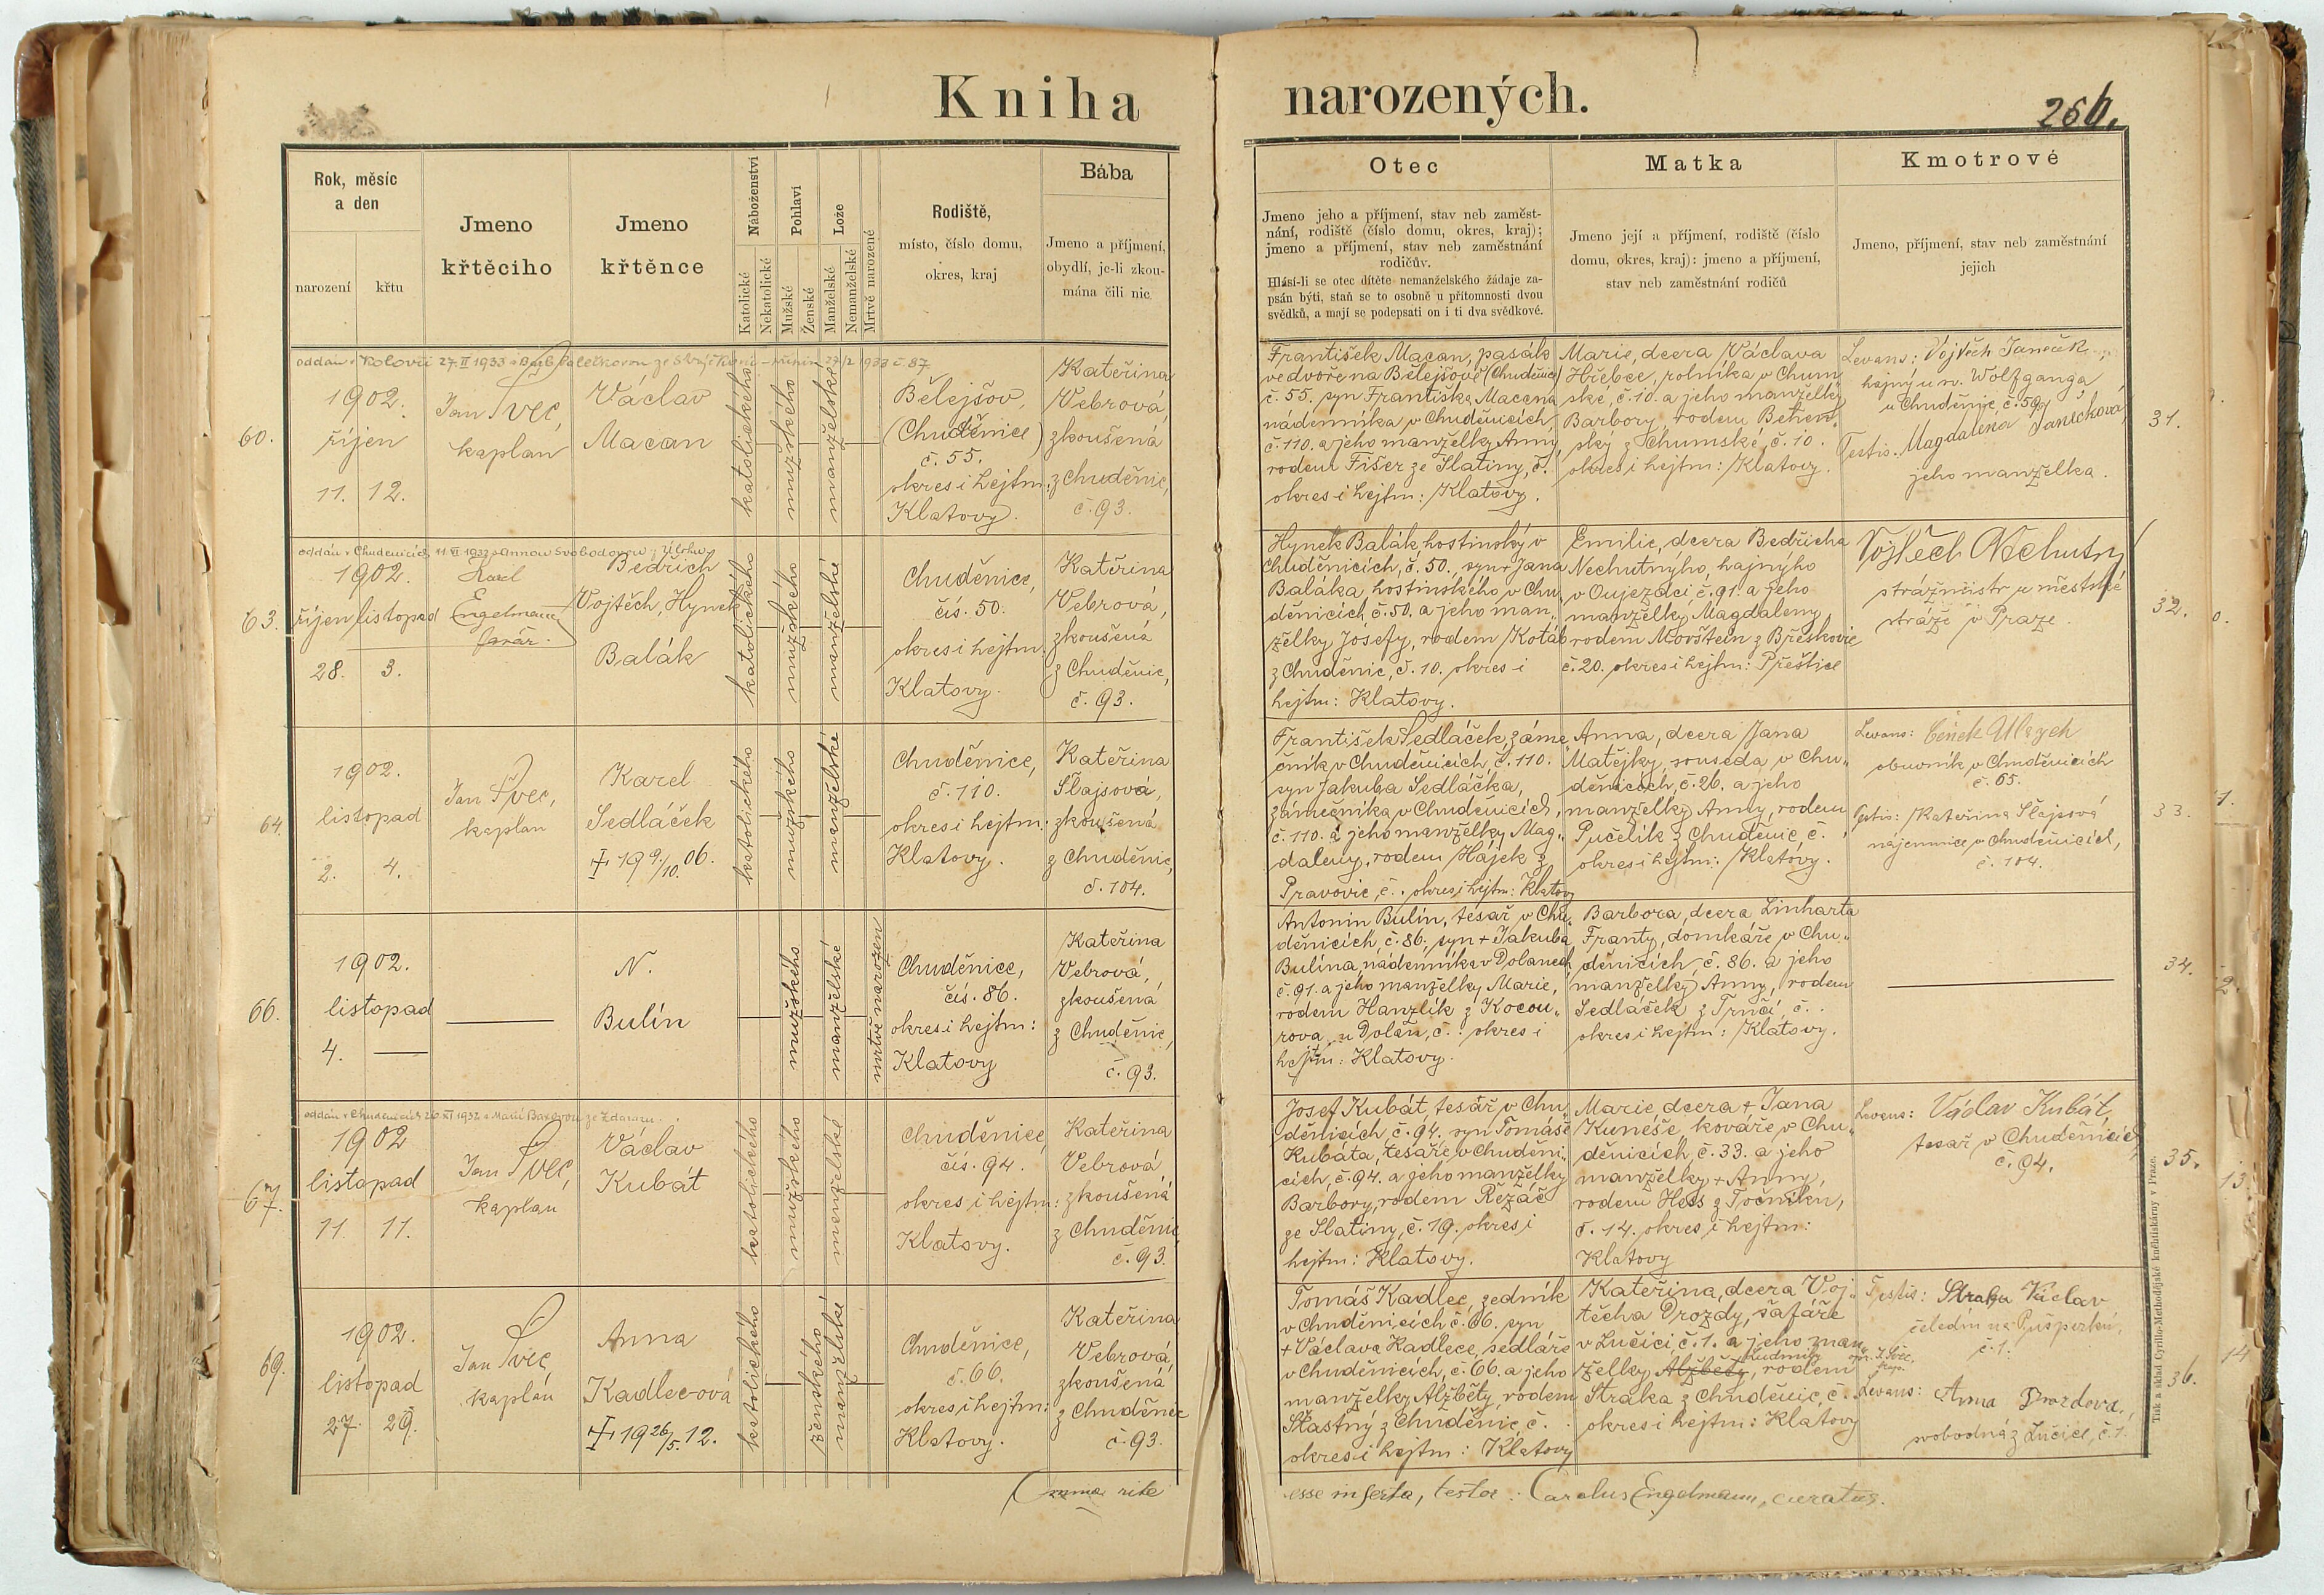 Kniha narozených.
266.
Rok, měsíc
a den
narození
křtu
Jmeno
křtěcího
Jmeno
křtěnce
Náboženství
Katolické
Nekatolické
Pohlaví
Mužské
Ženské
Lože
Manželské
Nemanželské
Mrtvě narozené
Rodiště,
místo, číslo domu,
okres, kraj
Bába
Jmeno a příjmení,
obydlí, je-li zkou-
mána čili nic
Otec
Jmeno jeho a příjmení, stav neb zaměst-
nání, rodiště (číslo domu, okres, kraj);
jmeno a příjmení, stav neb zaměstnání
rodičův.
Hlásí-li se otec dítěte nemanželského žádaje za-
psán býti, staň se to osobně u přítomnosti dvou
svědků, a mají se podepsati on i ti dva svědkové.
Matka
Jmeno její a příjmení, rodiště (číslo
domu, okres, kraj): jmeno a příjmení,
stav neb zaměstnání rodičů
Kmotrové
Jmeno, příjmení, stav neb zaměstnání
jejich
60.
1902.
říjen
11. 12.
Jan Švec,
kaplan
Václav
Macan
katolického
mužského
manželské
Bělejšov,
(Chuděnice)
č. 55.
okres i hejtm:
Klatovy.
Kateřina
Vebrová,
zkoušená
z Chuděnic,
č. 93.
František Macan, pasák
ve dvoře na Bělejšově (Chuděnice)
č. 55. syn Františka Macana
nádenníka v Chuděnicích,
č. 110. a jeho manželky Anny,
rodem Fišer ze Slatiny, č.
okres i hejtm: Klatovy.
Marie, dcera Václava
Hřebce, rolníka v Chum„
ské, č. 10. a jeho manželky
Barbory, rodem
sky z Chumské, č. 10.
okres i hejtm: Klatovy.
Levans: Vojtěch Janeček,
hajný u sv. Wolfganga,
u Chuděnic, č. 59.
Testis. Magdalena Janečková,
jeho manželka.
31.
63.
oddán v Chudenicích 11. VI 1932 s Annou Svobodovou
1902.
říjen listopad
28. 3.
Karel
Engelmann,
farář.
Bedřich
Vojtěch, Hynek
Balák
katolického
mužského
manželské
Chuděnice,
čís. 50.
okres i hejtm:
Klatovy.
Kateřina
Vebrová,
zkoušená
z Chuděnic,
č. 93.
Hynek Balák, hostinský v
Chuděnicích, č. 50., syn + Jana
Baláka, hostinského v Chu„
děnicích, č. 50. a jeho man„
želky Josefy, rodem Koťáb
z Chuděnic, č. 10. okres i
hejtm: Klatovy.
Emilie, dcera Bedřicha
Nechutnýho, hajnýho
v Oujezdci č. 91. a jeho
manželky Magdaleny,
rodem Movštein z Břeskovic
č. 20. okres i hejtm: Přeštice
Vojtěch Nechutný
strážmistr u městské
stráže v Praze.
32.
64.
1902.
listopad
2. 4.
Jan Švec,
kaplan
Karel
Sedláček
† 19 9/10. 06.
katolického
mužského
manželské
Chuděnice,
č. 110.
okres i hejtm:
Klatovy.
Kateřina
Šlajsová,
zkoušená
z Chuděnic,
č. 104.
František Sedláček, záme„
čník v Chuděnicích, č. 110.
syn Jakuba Sedláčka,
zámečníka v Chuděnicích,
č. 110. a jeho manželky Mag„
daleny, rodem Hájek z
Pravovic, č. . okres i hejtm: Klatovy
Anna, dcera Jana
Matějky, souseda v Chu„
děnicích, č. 26. a jeho
manželky Anny, rodem
Pučelík z Chuděnic, č.
okres i hejtm: Klatovy.
Levans: Čeněk Ulrych
obuvník v Chuděnicích
č. 65.
Testis: Kateřina Šlajsová
nájemnice v Chuděnicích,
č. 104.
33.
66.
1902.
listopad
4.
N.
Bulín
mužského
manželské
mrtvě narozen
Chuděnice,
čís. 86.
okres i hejtm:
Klatovy
Kateřina
Vebrová,
zkoušená
z Chuděnic,
č. 93.
Antonín Bulín, tesař v Chu„
děnicích, č. 86., syn + Jakuba
Bulína, nádenníka v Dolanech,
č. 91. a jeho manželky Marie,
rodem Hanzlík z Kocou„
rova, u Dolan, č. : okres i
hejtm: Klatovy.
Barbora, dcera Linharta
Franty, domkáře v Chu„
děnicích, č. 86. a jeho
manželky Anny, rodem
Sedláček z Trnčí, č. .
okres i hejtm: Klatovy.
34.
67.
oddán v Chudenicích 26. XI 1932 s Marií
1902
listopad
11. 11.
Jan Švec,
kaplan
Václav
Kubát
katolického
mužského
manželské
Chuděnice
čís. 94.
okres i hejtm:
Klatovy.
Kateřina
Vebrová,
zkoušená
z Chuděnic,
č. 93.
Josef Kubát, tesář v Chu„
děnicích č. 94. syn Tomáše
Kubáta, tesáře, v Chuděni„
cích, č. 94. a jeho manželky
Barbory, rodem Řezáč
ze Slatiny, č. 19. okres i
hejtm: Klatovy.
Marie, dcera + Jana
Kuneše, kováře v Chu„
děnicích, č. 33. a jeho
manželky + Anny,
rodem Hess z Točníku,
č. 14. okres i hejtm:
Klatovy
Levans: Václav Kubát,
tesař v Chuděnicích,
č. 94.
35.
69.
1902.
listopad
27. 29.
Jan Švec,
kaplan
Anna
Kadlecová
† 19 26/5. 12.
katolického
ženského
manželské
Chuděnice,
č. 66.
okres i hejtm:
Klatovy.
Kateřina
Vebrová,
zkoušená
z Chuděnic
č. 93.
Tomáš Kadlec, zedník
v Chuděnicích č. 66. syn
+ Václava Kadlece, sedláře
v Chuděnicích, č. 66. a jeho
manželky Alžběty, rodem
Šťastný z Chuděnic, č. .
okres i hejtm: Klatovy
Kateřina, dcera Voj„
těcha Drozdy, šafáře
v Lučici, č. 1. a jeho man„
želky Alžběty, Ludmily rodem
Straka z Chuděnic, č. .
okres i hejtm: Klatovy
Testis: Straka Václav
čeledín na Pušperku,
č. 1.
Levans: Anna Drozdova,
svobodná z Lučice, č. 1.
36.
Omnia rite esse inserta, testor: Carolus Engelmann, curatus.
Tisk a sklad Cyrillo-Methodějské knihtiskárny v Praze.